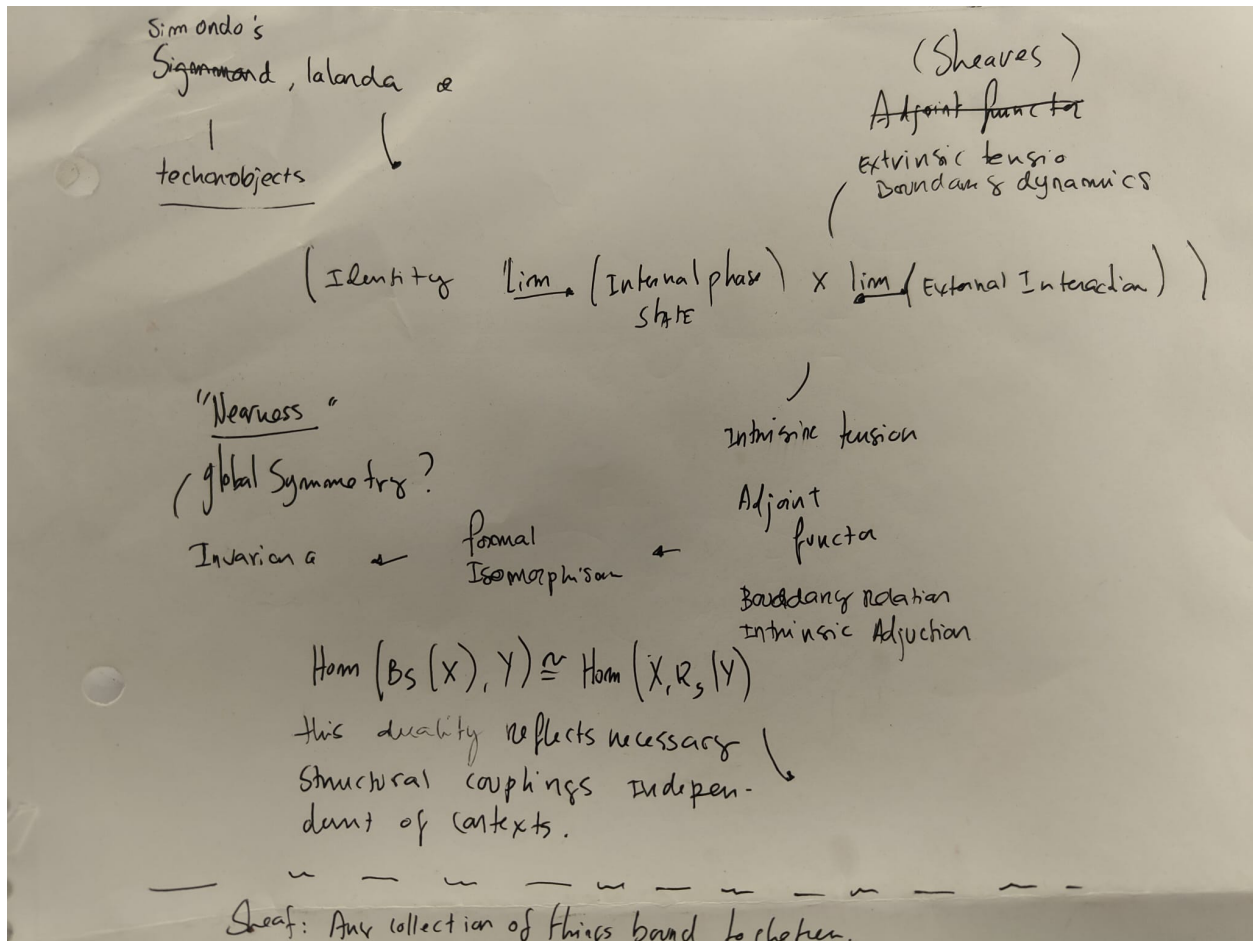 Simondo's
Sigmmand, lalanda &
techonobjects
(Sheaves)
Adjoint functor
Extrinsic tensio
Boundary dynamics
(Identity lim (Internal phase) x lim (External Interaction))
STATE
"Nearness"
global Symmetry?
Intrinsic tension
Adjoint
functor
Invariana ← formal
Isomorphism ←
Bouddary relation
Intrinsic Adjuction
Hom (Bs (X), Y) ≅ Hom (X, Rs (Y)
this duality reflects necessary
Structural couplings Indepen-
dent of contexts.
Sheaf: Any collection of things bound together.